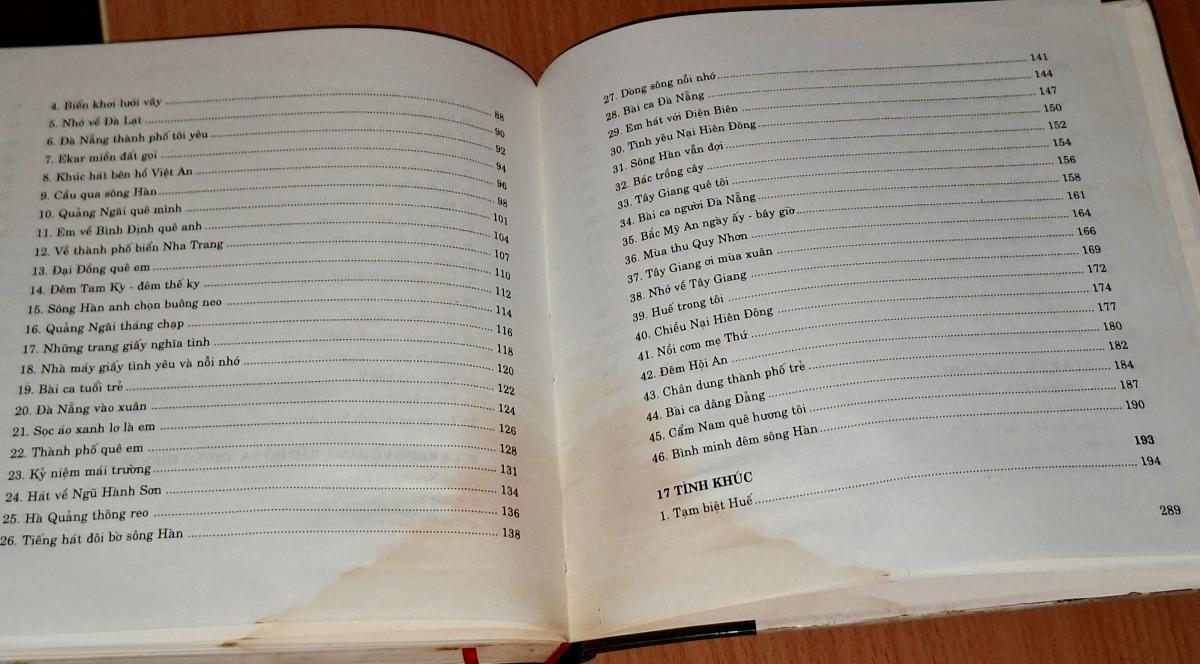 4. Biển khơi lưới vây 88
5. Nhớ về Đà Lạt 90
6. Đà Nẵng thành phố tôi yêu 92
7. Ekar miền đất gọi 94
8. Khúc hát bên hồ Việt An 96
9. Cầu qua sông Hàn 98
10. Quảng Ngãi quê mình 101
11. Em về Bình Định quê anh 104
12. Về thành phố biển Nha Trang 107
13. Đại Đồng quê em 110
14. Đêm Tam Kỳ - đêm thế kỷ 112
15. Sông Hàn anh chọn buông neo 114
16. Quảng Ngãi tháng chạp 116
17. Những trang giấy nghĩa tình 118
18. Nhà máy giấy tình yêu và nỗi nhớ 120
19. Bài ca tuổi trẻ 122
20. Đà Nẵng vào xuân 124
21. Sọc áo xanh lơ là em 126
22. Thành phố quê em 128
23. Kỷ niệm mái trường 131
24. Hát về Ngũ Hành Sơn 134
25. Hà Quảng thông reo 136
26. Tiếng hát đôi bờ sông Hàn 138
27. Dòng sông nỗi nhớ 141
28. Bài ca Đà Nẵng 144
29. Em hát với Điện Biên 147
30. Tình yêu Nại Hiên Đông 150
31. Sông Hàn vẫn đợi 152
32. Bác trồng cây 154
33. Tây Giang quê tôi 156
34. Bài ca người Đà Nẵng 158
35. Bắc Mỹ An ngày ấy - bây giờ 161
36. Mùa thu Quy Nhơn 164
37. Tây Giang ơi mùa xuân 166
38. Nhớ về Tây Giang 169
39. Huế trong tôi 172
40. Chiều Nại Hiên Đông 174
41. Nồi cơm mẹ Thứ 177
42. Đêm Hội An 180
43. Chân dung thành phố trẻ 182
44. Bài ca dâng Đảng 184
45. Cẩm Nam quê hương tôi 187
46. Bình minh đêm sông Hàn 190
17 TÌNH KHÚC 193
1. Tạm biệt Huế 194
289